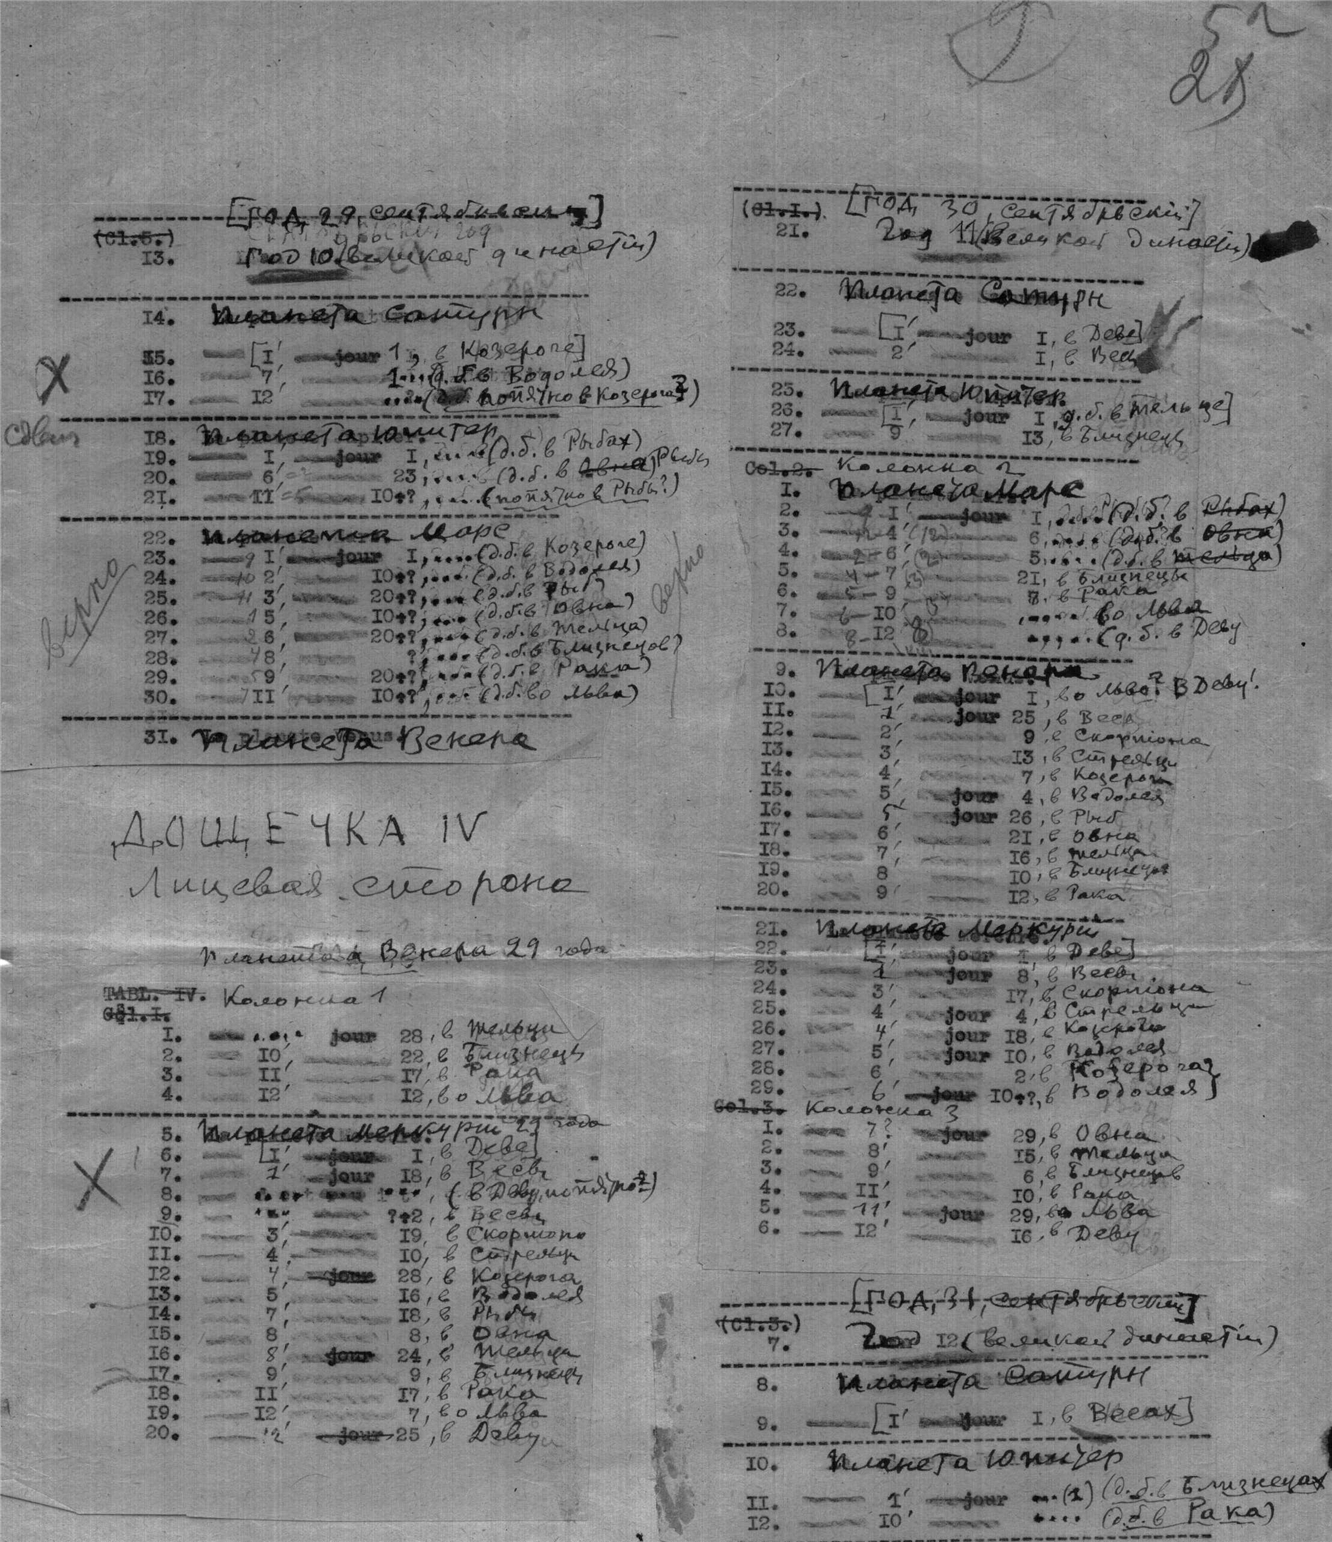 52
28
[ГОД 29, сентябрьский]
(Cl.5.)
13. Год 10 (великой династіи)
14. Планета Сатурн
15. [I', jour 1, в Козероге]
16. 7, 1...(д.б. в Водолея)
17. 12 ....(д.б. попятно в Козерога?)
сдвиг
18. Планета Юпитер
19. I, jour I,....(д.б. в Рыбах)
20. 6, 23,....(д.б. в Овна) Рыбы
21. II 10+?,....(попятно в Рыбы?)
22. Планета Марс
23. I' jour I,....(д.б. в Козероге)
24. 2' 10+?,....(д.б. в Водолея)
25. 3' 20+?,....(д.б. в Рыб)
26. 5 10+?,....(д.б. в Овна)
27. 6 20+?,....(д.б. в Тельца)
28. 8, ?,....(д.б. в Близнецов?
29. 9 20+?,....(д.б. в Рака)
30. II' 10+?,....(д.б. во Льва)
верно
верно
31. Планета Венера
ДОЩЕЧКА IV
Лицевая сторона
Планета Венера 29 года
TABL. IV. Колонка 1
Col.I.
I. .... jour 28, в Тельца
2. 10', 22, в Близнецы
3. II' 17, в Рака
4. 12' 12, во Льва
5. Планета Меркурій 29 года
6. [I' jour I, в Деве]
7. 1' jour 18, в Весы
8. (в Деву попятно?)
9. ... ?+2, в Весы
10. 3', 19, в Скорпіона
II. 4, 10, в Стрельца
12. 4, jour 28, в Козерога
13. 5' 16, в Водолея
14. 7, 18, в Рыбы
15. 8 8, в Овна
16. 8' jour 24, в Тельца
17. 9, 9, в Близнецы
18. II' 17, в Рака
19. 12', 7, во Льва
20. 12' jour 25, в Деву
[ГОД 30, сентябрьскій]
(Cl.I.)
21. Год 11 (великой династіи)
22. Планета Сатурн
23. [I' jour I, в Деве]
24. 2' I, в Весы
25. Планета Юпитер
26. [I', jour I, д.б. в Тельце]
27. 9 13, в Близнецы
Col.2. Колонка 2
I. Планета Марс
2. I' jour I,....(д.б. в Рыбах)
3. 4 6,....(д.б. в Овна)
4. 6, 5....(д.б. в Тельца)
5. 7 21, в Близнецы
6. 9 8, в Рака
7. 10' ..... во Льва
8. 12 ..... (д.б. в Деву
9. Планета Венера
10. [I' jour I, во Льва? в Деву!
II. 1' jour 25, в Весы
12. 2' 9, в Скорпіона
13. 3, 13, в Стрельца
14. 4, 7, в Козерога
15. 5' jour 4, в Водолея
16. 5' jour 26, в Рыб
17. 6' 21, в Овна
18. 7, 16, в Тельца
19. 8 10, в Близнецов
20. 9' 12, в Рака
21. Планета Меркурій
22. [I', jour I, в Деве]
23. 1 jour 8, в Весы
24. 3' 17, в Скорпіона
25. 4' jour 4, в Стрельца
26. 4' jour 18, в Козерога
27. 5, jour 10, в Водолея
28. 6' 2, в [Козерога?
29. 6' jour 10+?, в Водолея]
Col.3. Колонка 3
I. 7? jour 29, в Овна
2. 8' 15, в Тельца
3. 9' 6, в Близнецов
4. II' 10, в Рака
5. 11' jour 29, во Льва
6. 12' 16, в Деву
[ГОД 31, сентябрьскій]
(Cl.3.)
7. Год 12 (великой династіи)
8. Планета Сатурн
9. [I' jour I, в Весах]
10. Планета Юпитер
II. 1' jour ...(1) (д.б. в Близнецах
12. 10' .... (д.б. в Рака)